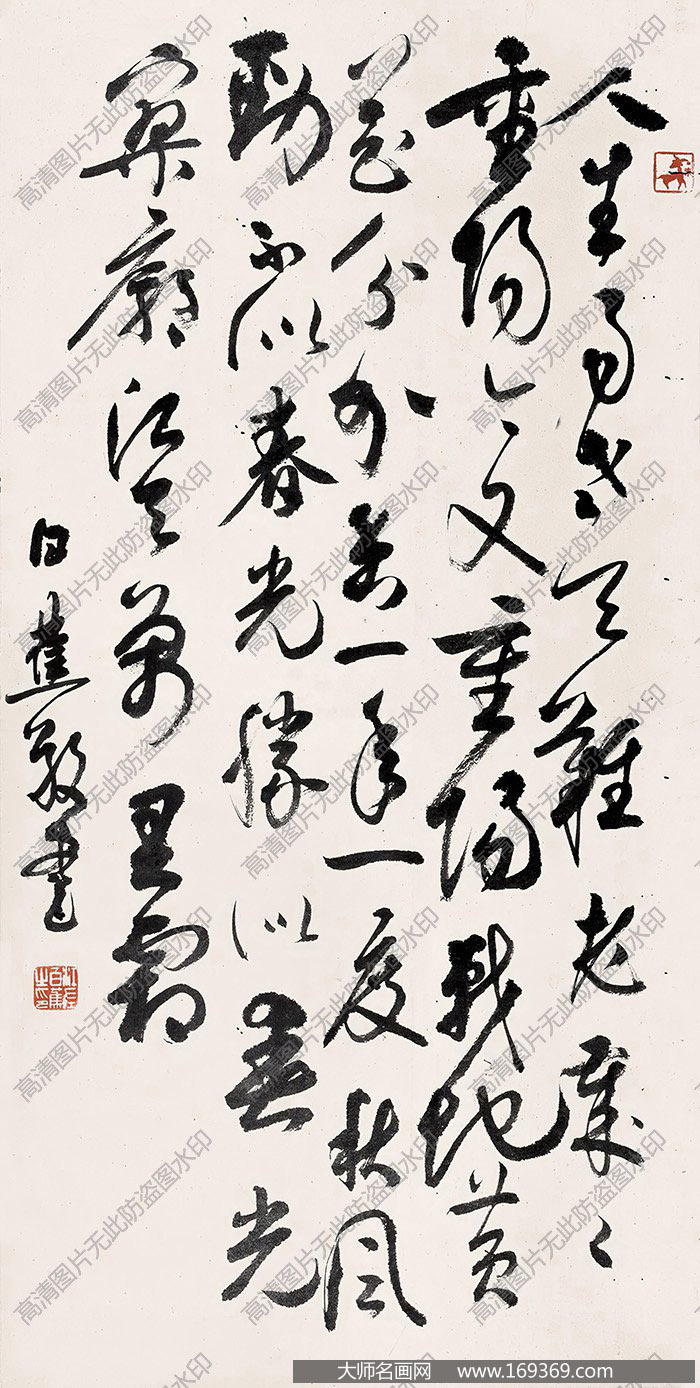 人生易老天難老歲〻
重陽今又重陽戰地黃
花分外香一年一度秋風
勁不似春光勝似春光
寥廓江天萬里霜
白蕉敬書
高清图片无此防盗图水印
大师名画网 www.169369.com